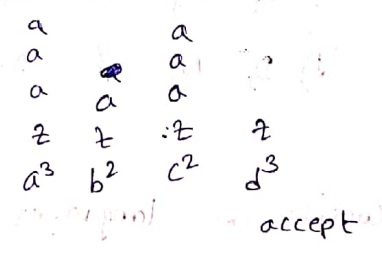 a a
a a
a a a
z z :z z
a³ b² c² d³
accept